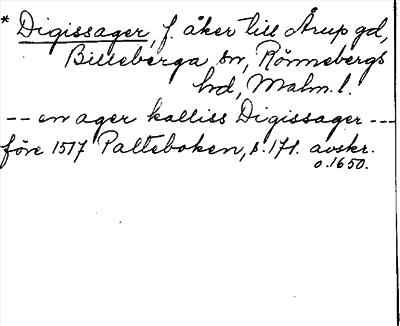 * Digissager, f. åker till Årup gd,
Billeberga sn, Rönnebergs
hd, Malm. l.
-- en ager kalliss Digissager ---
före 1517 Palteboken, s. 171. avskr.
o. 1650.